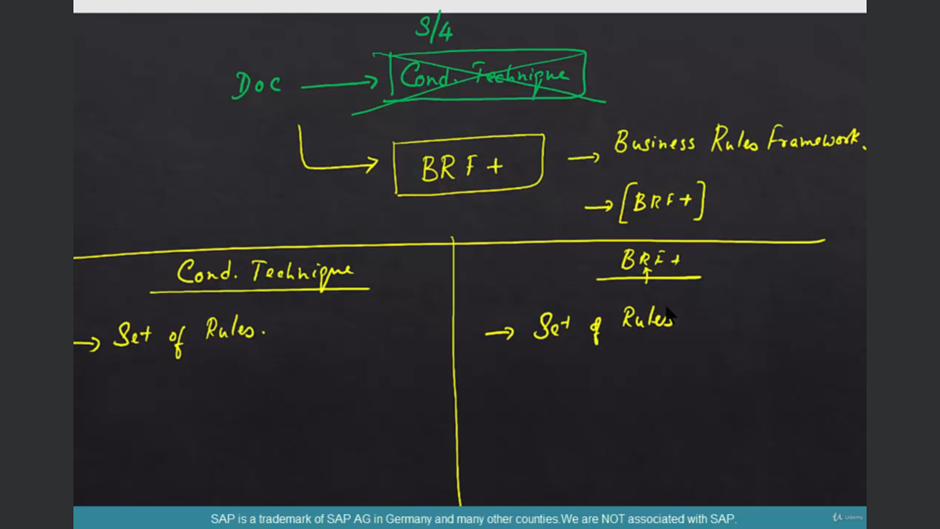 S/4
Doc → Cond. Technique
BRF+ → Business Rules Framework.
→ [BRF+]
Cond. Technique
BRF+
→ Set of Rules.
→ Set of Rules
SAP is a trademark of SAP AG in Germany and many other counties.We are NOT associated with SAP.
Udemy